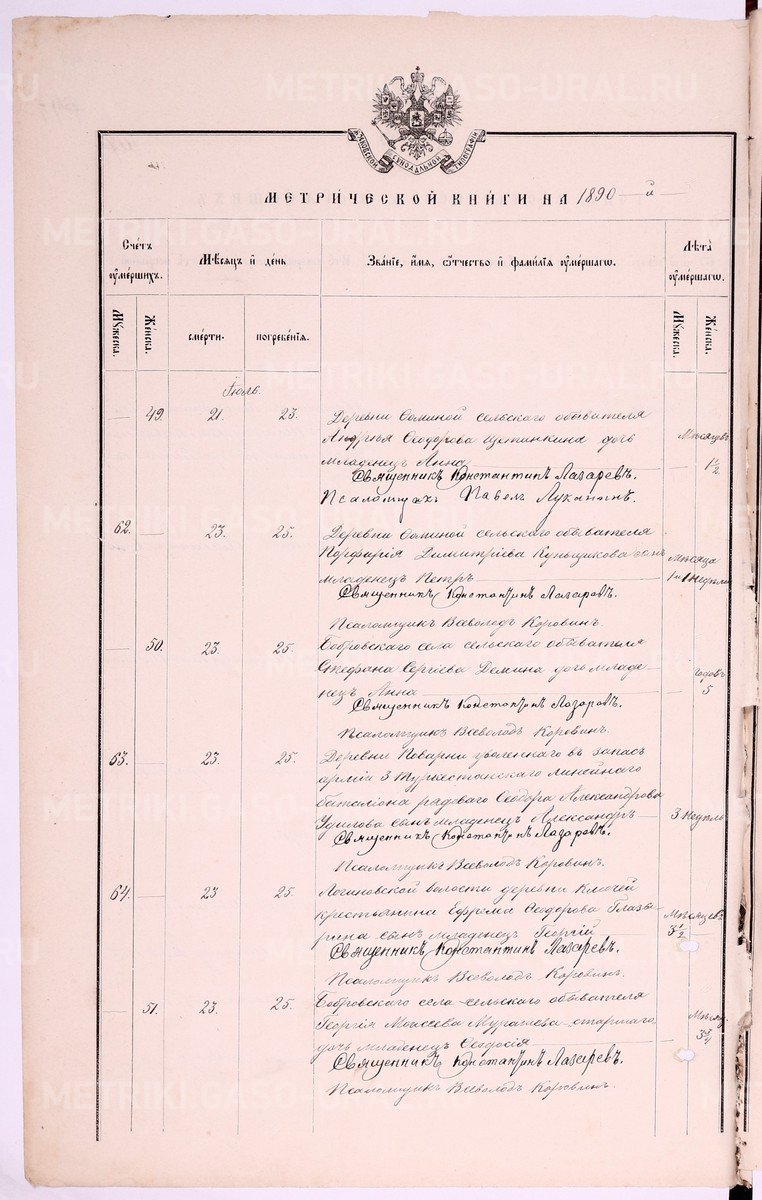 МОСКОВСКОЙ СѴНОДАЛЬНОЙ ТИПОГРАФІИ
МЕТРИ́ЧЕСКОЙ КНИ́ГИ НА 1890 й
Сче́тъ ᲂу҆ме́ршихъ.
Мѣ́сяцъ и҆ де́нь
Зва́нїе, и҆́мя, ѻ҆́тчество и҆ фами́лїя ᲂу҆ме́ршагѡ.
Лѣ̀та ᲂу҆ме́ршагѡ.
Мꙋ́жеска.
Же́нска.
сме́рти.
погребе́нїя.
Мꙋ́жеска.
Же́нска.
Іюль.
— 49. 21. 23. Деревни Соминой сельскаго обывателя
Андрея Ѳеодорова Щетинкина дочь
младенецъ Анна Мѣсяцевъ 1½
Священникъ Константинъ Лазаревъ.
Псаломщикъ Павелъ Луканинъ.
62. — 23. 25. Деревни Соминой сельскаго обывателя
Порфирія Димитріева сынъ
младенецъ Петръ Мѣсяца 1 и 1 недѣли
Священникъ Константинъ Лазаревъ.
Псаломщикъ Всеволодъ Коровинъ.
— 50. 23. 25. Бобровскаго села сельскаго обывателя
Стефана Сергіева Демина дочь младе-
нецъ Анна Годовъ 5
Священникъ Константинъ Лазаревъ.
Псаломщикъ Всеволодъ Коровинъ.
63. — 23. 25. Деревни Поварни уволеннаго въ запасъ
арміи 3 Туркестанскаго линейнаго
баталіона рядоваго Ѳеодора Александрова
Удилова сынъ младенецъ Александръ 3 недѣль
Священникъ Константинъ Лазаревъ.
Псаломщикъ Всеволодъ Коровинъ.
64. — 23 25. Логиновской волости деревни Ключей
крестьянина Ефрема Ѳеодорова Глазы-
рина сынъ младенецъ Георгій Мѣсяцевъ 3½
Священникъ Константинъ Лазаревъ.
Псаломщикъ Всеволодъ Коровинъ.
— 51. 23. 25. Бобровскаго села сельскаго обывателя
Георгія Моисеева старшаго
дочь младенецъ Ѳеодосія 3¾
Священникъ Константинъ Лазаревъ.
Псаломщикъ Всеволодъ Коровинъ.
METRIKI.GASO-URAL.RU